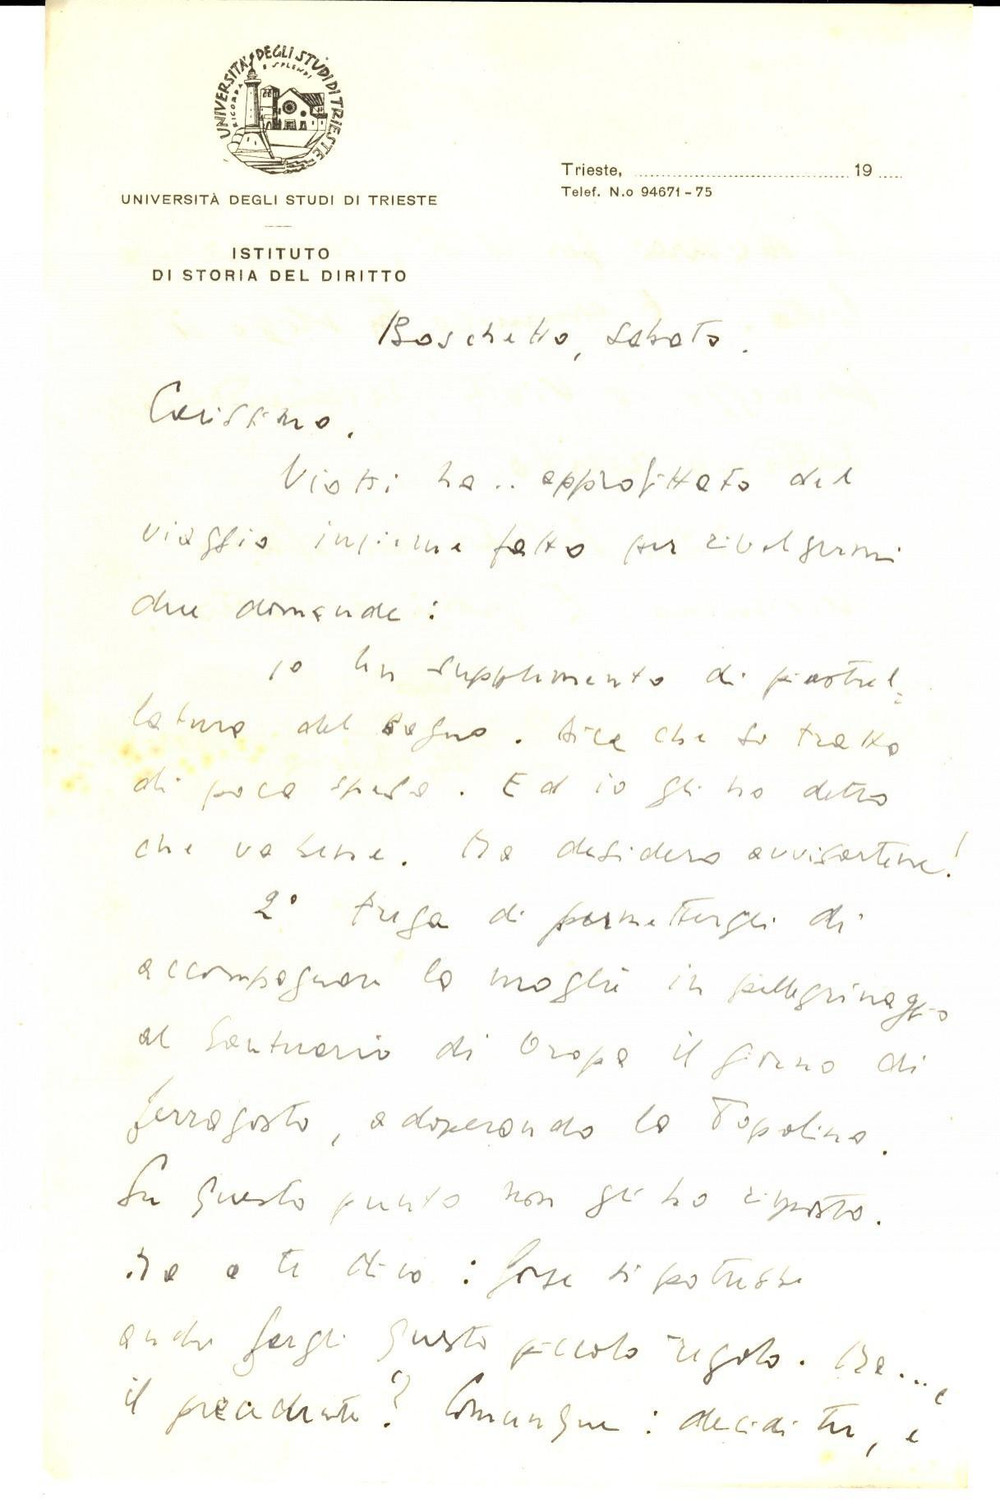 UNIVERSITÀ DEGLI STUDI DI TRIESTE
RICORDA E SPLENDI
UNIVERSITÀ DEGLI STUDI DI TRIESTE
ISTITUTO
DI STORIA DEL DIRITTO
Trieste, 19
Telef. N.o 94671-75
Boschetto, Sabato.
Carissimo,
Viotti ha.. approfittato del
viaggio insieme fatto per rivolgermi
due domande:
1o Un supplimento di piastrel=
latura del bagno. Dice che si tratta
di poca spesa. Ed io gli ho detto
che va bene. Ma desidero avvisartene!
2° Prega di permettergli di
accompagnare la moglie in pellegrinaggio
al Santuario di Oropa il giorno di
ferragosto, adoperando la Topolino.
Su questo punto non gli ho risposto.
Ma a te dico: forse si potrebbe
anche fargli questo piccolo regalo. Ma... e
il precedente? Comunque: decidi tu, e